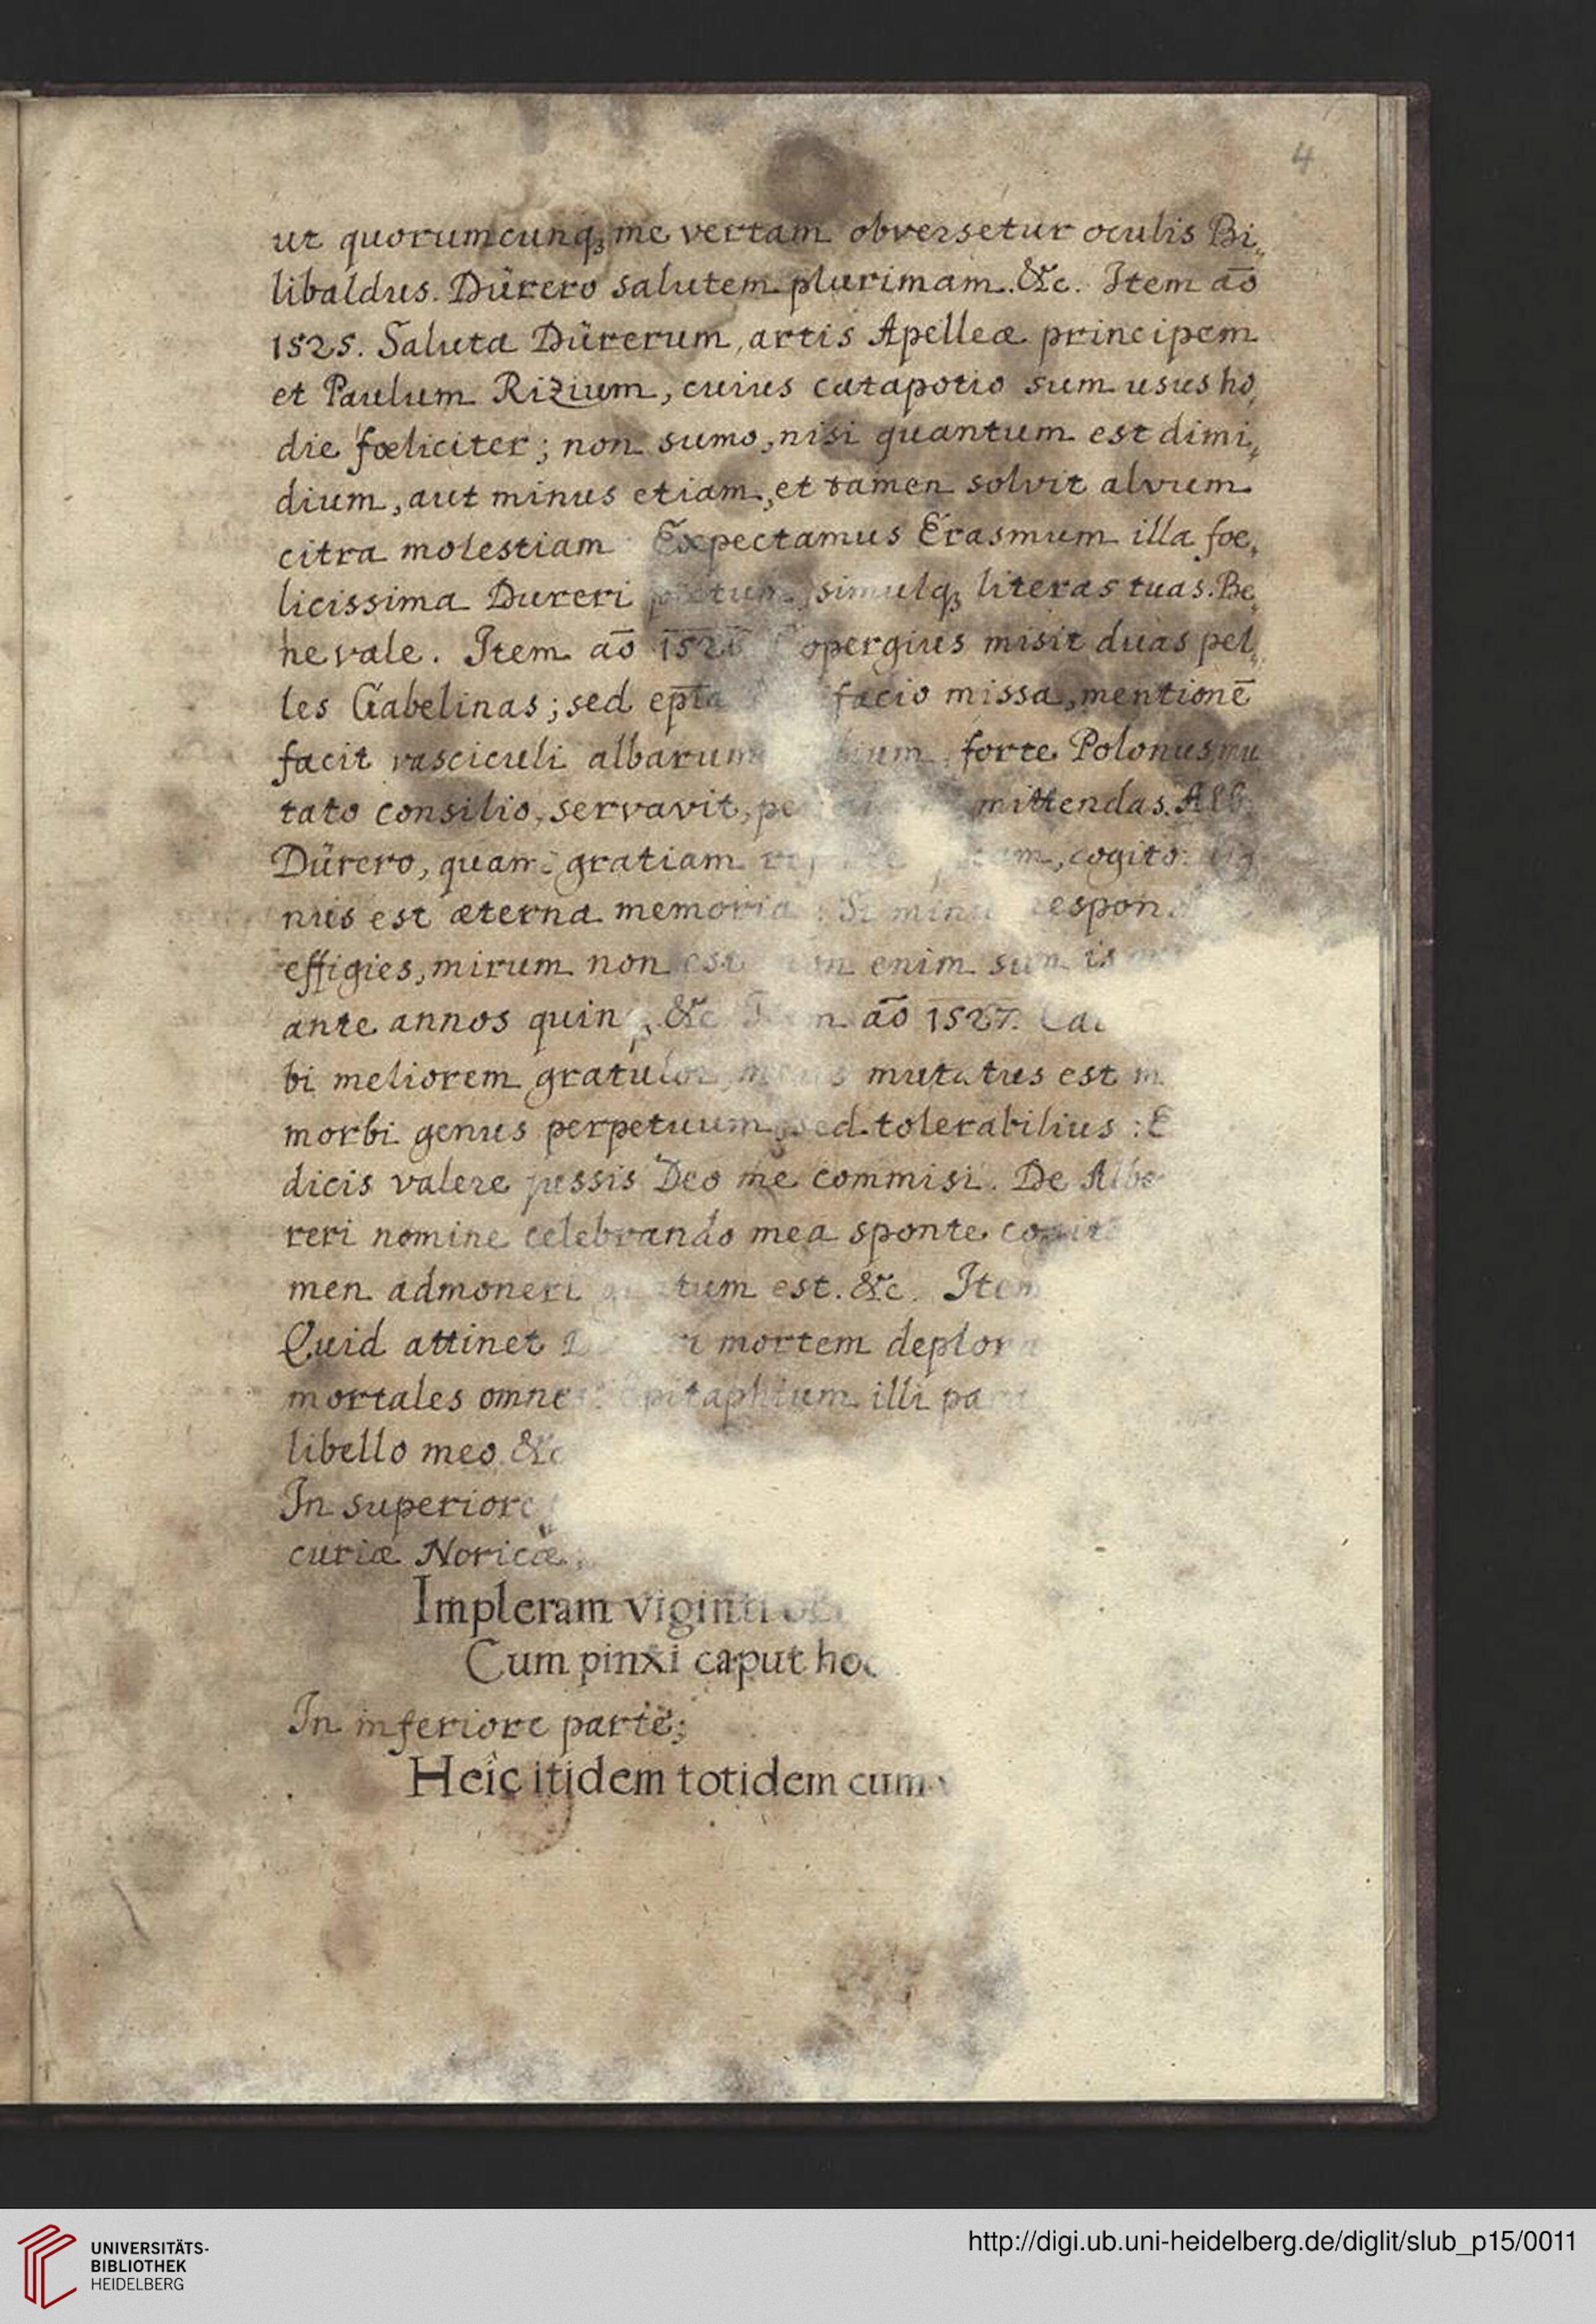 4
ut quorumcunq; me vertam obversetur oculis Bi„
libaldus. Dürero salutem plurimam. &c. Item aō
1525. Saluta Dürerum, artis Apelleæ principem
et Paulum Rizium, cuius catapotio sum usus ho„
die fœliciter; non sumo, nisi quantum est dimi„
dium, aut minus etiam, et tamen solvit alvum
citra molestiam Expectamus Erasmum illa foe„
licissima Dureri simulq; literas tuas. Be„
ne vale. Item aō misit duas pel„
les Gabelinas; sed missa, mentionē
facit vasciculi albarum forte Polonus, mu
tato consilio, servavit, mittendas. Alb.
Dürero, quam gratiam cogito.
nus est æterna memoria
effigies, mirum non enim sum is
ante annos &c aō 1527.
bi meliorem mutatus est
morbi genus perpetuum, sed tolerabilius :
dicis valere jussis Deo me commisi. De
reri nomine celebrando mea sponte
men admoneri est. &c. Item
Quid attinet mortem
mortales Epitaphium illi
libello meo &c
In superiore
curiæ Noricæ,
Impleram viginti
Cum pinxi caput hoc
In inferiore parte;
Heic itidem totidem cum
UNIVERSITÄTS-
BIBLIOTHEK
HEIDELBERG
http://digi.ub.uni-heidelberg.de/diglit/slub_p15/0011